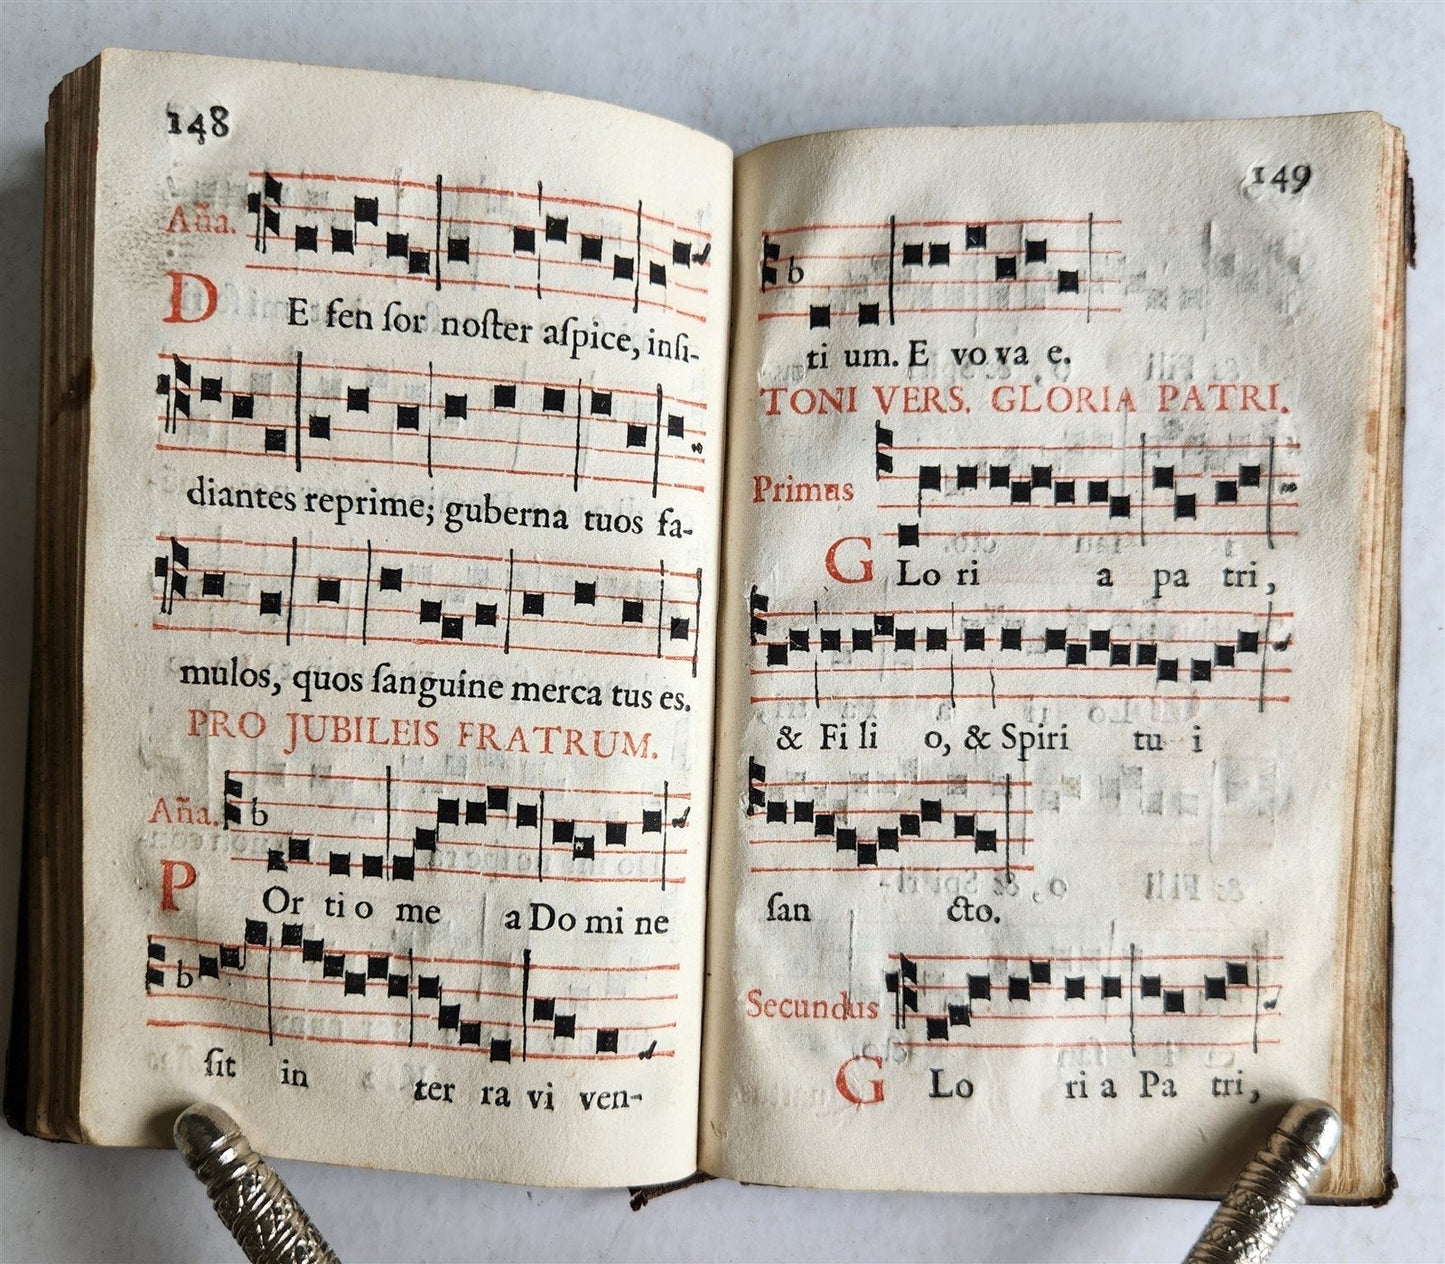 148
Aña.
DE fen ſor noſter aſpice, inſi-
diantes reprime; guberna tuos fa-
mulos, quos ſanguine merca tus es.
PRO JUBILEIS FRATRUM.
Aña.
POr ti o me a Do mi ne
ſit in ter ra vi ven-
149
ti um. E vo va e.
TONI VERS. GLORIA PATRI.
Primus
GLo ri a pa tri,
& Fi li o, & Spiri tu i
ſan cto.
Secundus
GLo ri a Pa tri,